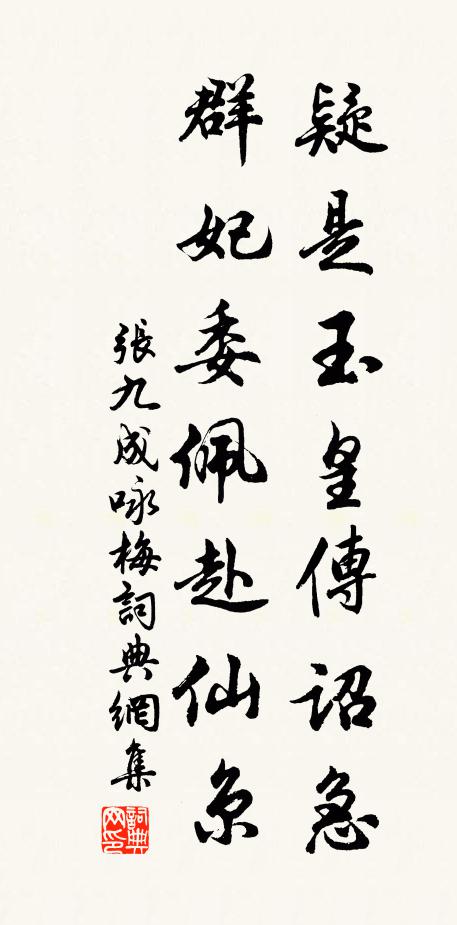 疑是玉皇傳詔急
群妃委佩赴仙京
張九成咏梅詞典網集
詞典网印